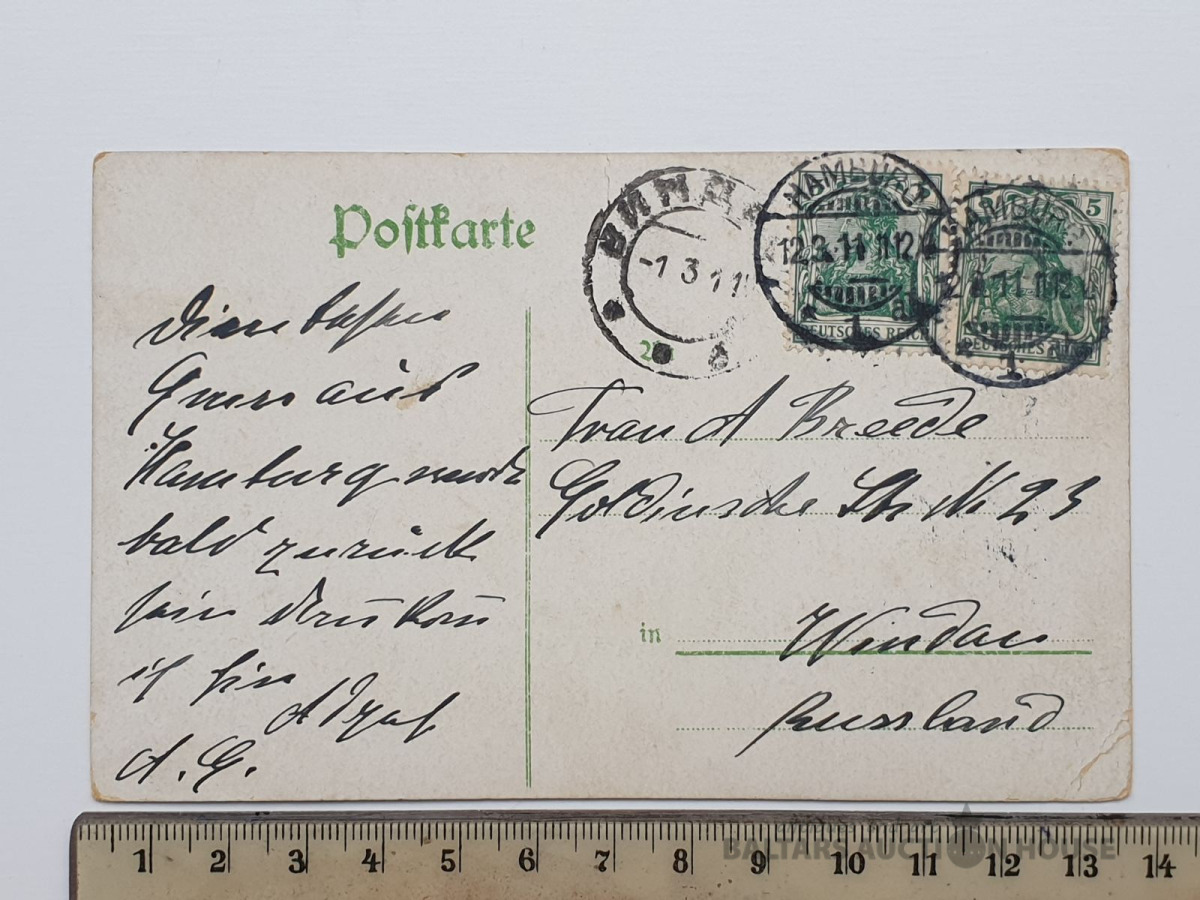 Postkarte
ВИНДА
-1 3 11
HAMBURG
12.3.11 11-12 V
1
HAMBURG
11 11-12
1
5
DEUTSCHES REICH
DEUTSCHES REICH
besten
Gruss aus
Hamburg werde
bald zurück
sein
ich hier
A. G.
Frau A Breede
Goldinsche Str N 23
in Windau
Russland
1 2 3 4 5 6 7 8 9 10 11 12 13 14
BALTARS AUCTION HOUSE